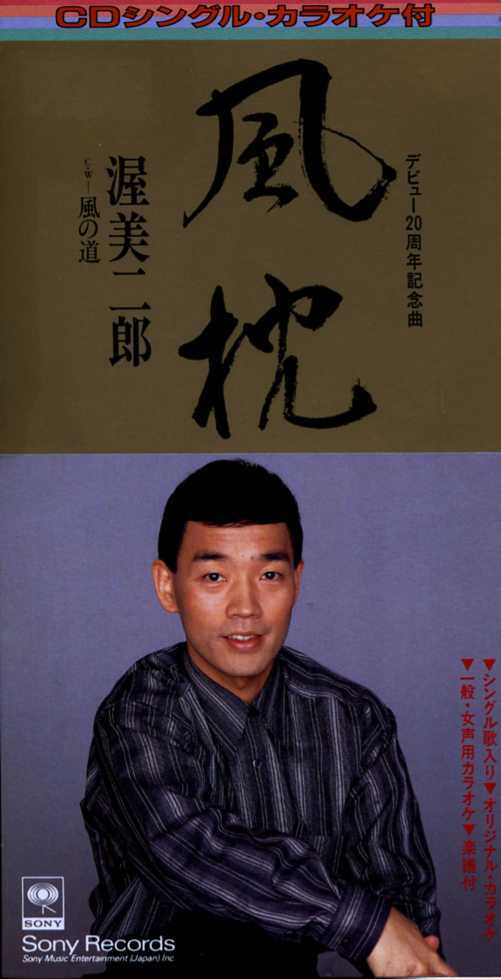 CDシングル・カラオケ付
デビュー20周年記念曲
風枕
渥美二郎
C/W—風の道
▼シングル歌入り▼オリジナル・カラオケ
▼一般・女声用カラオケ▼楽譜付
SONY
Sony Records
Sony Music Entertainment (Japan) Inc